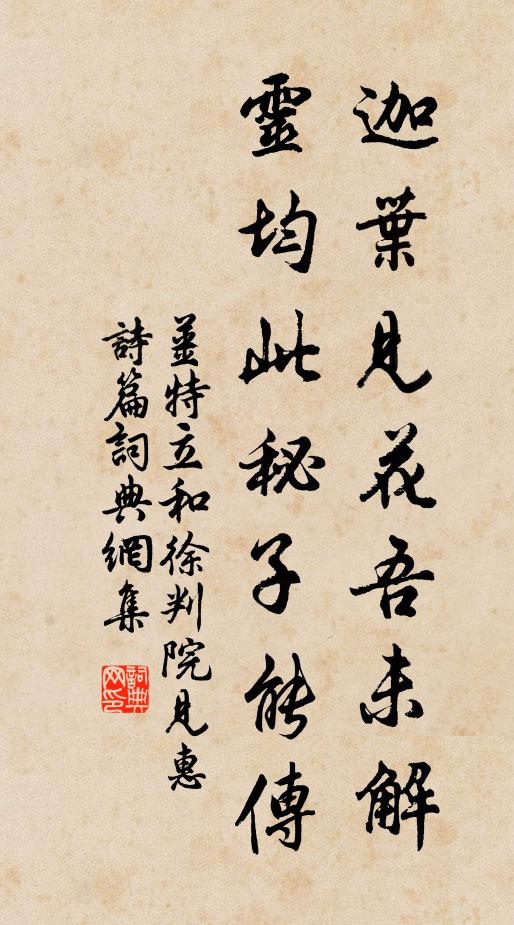 迦葉見花吾未解
靈均此秘子能傳
姜特立和徐判院見惠
詩篇詞典網集
詞典網印